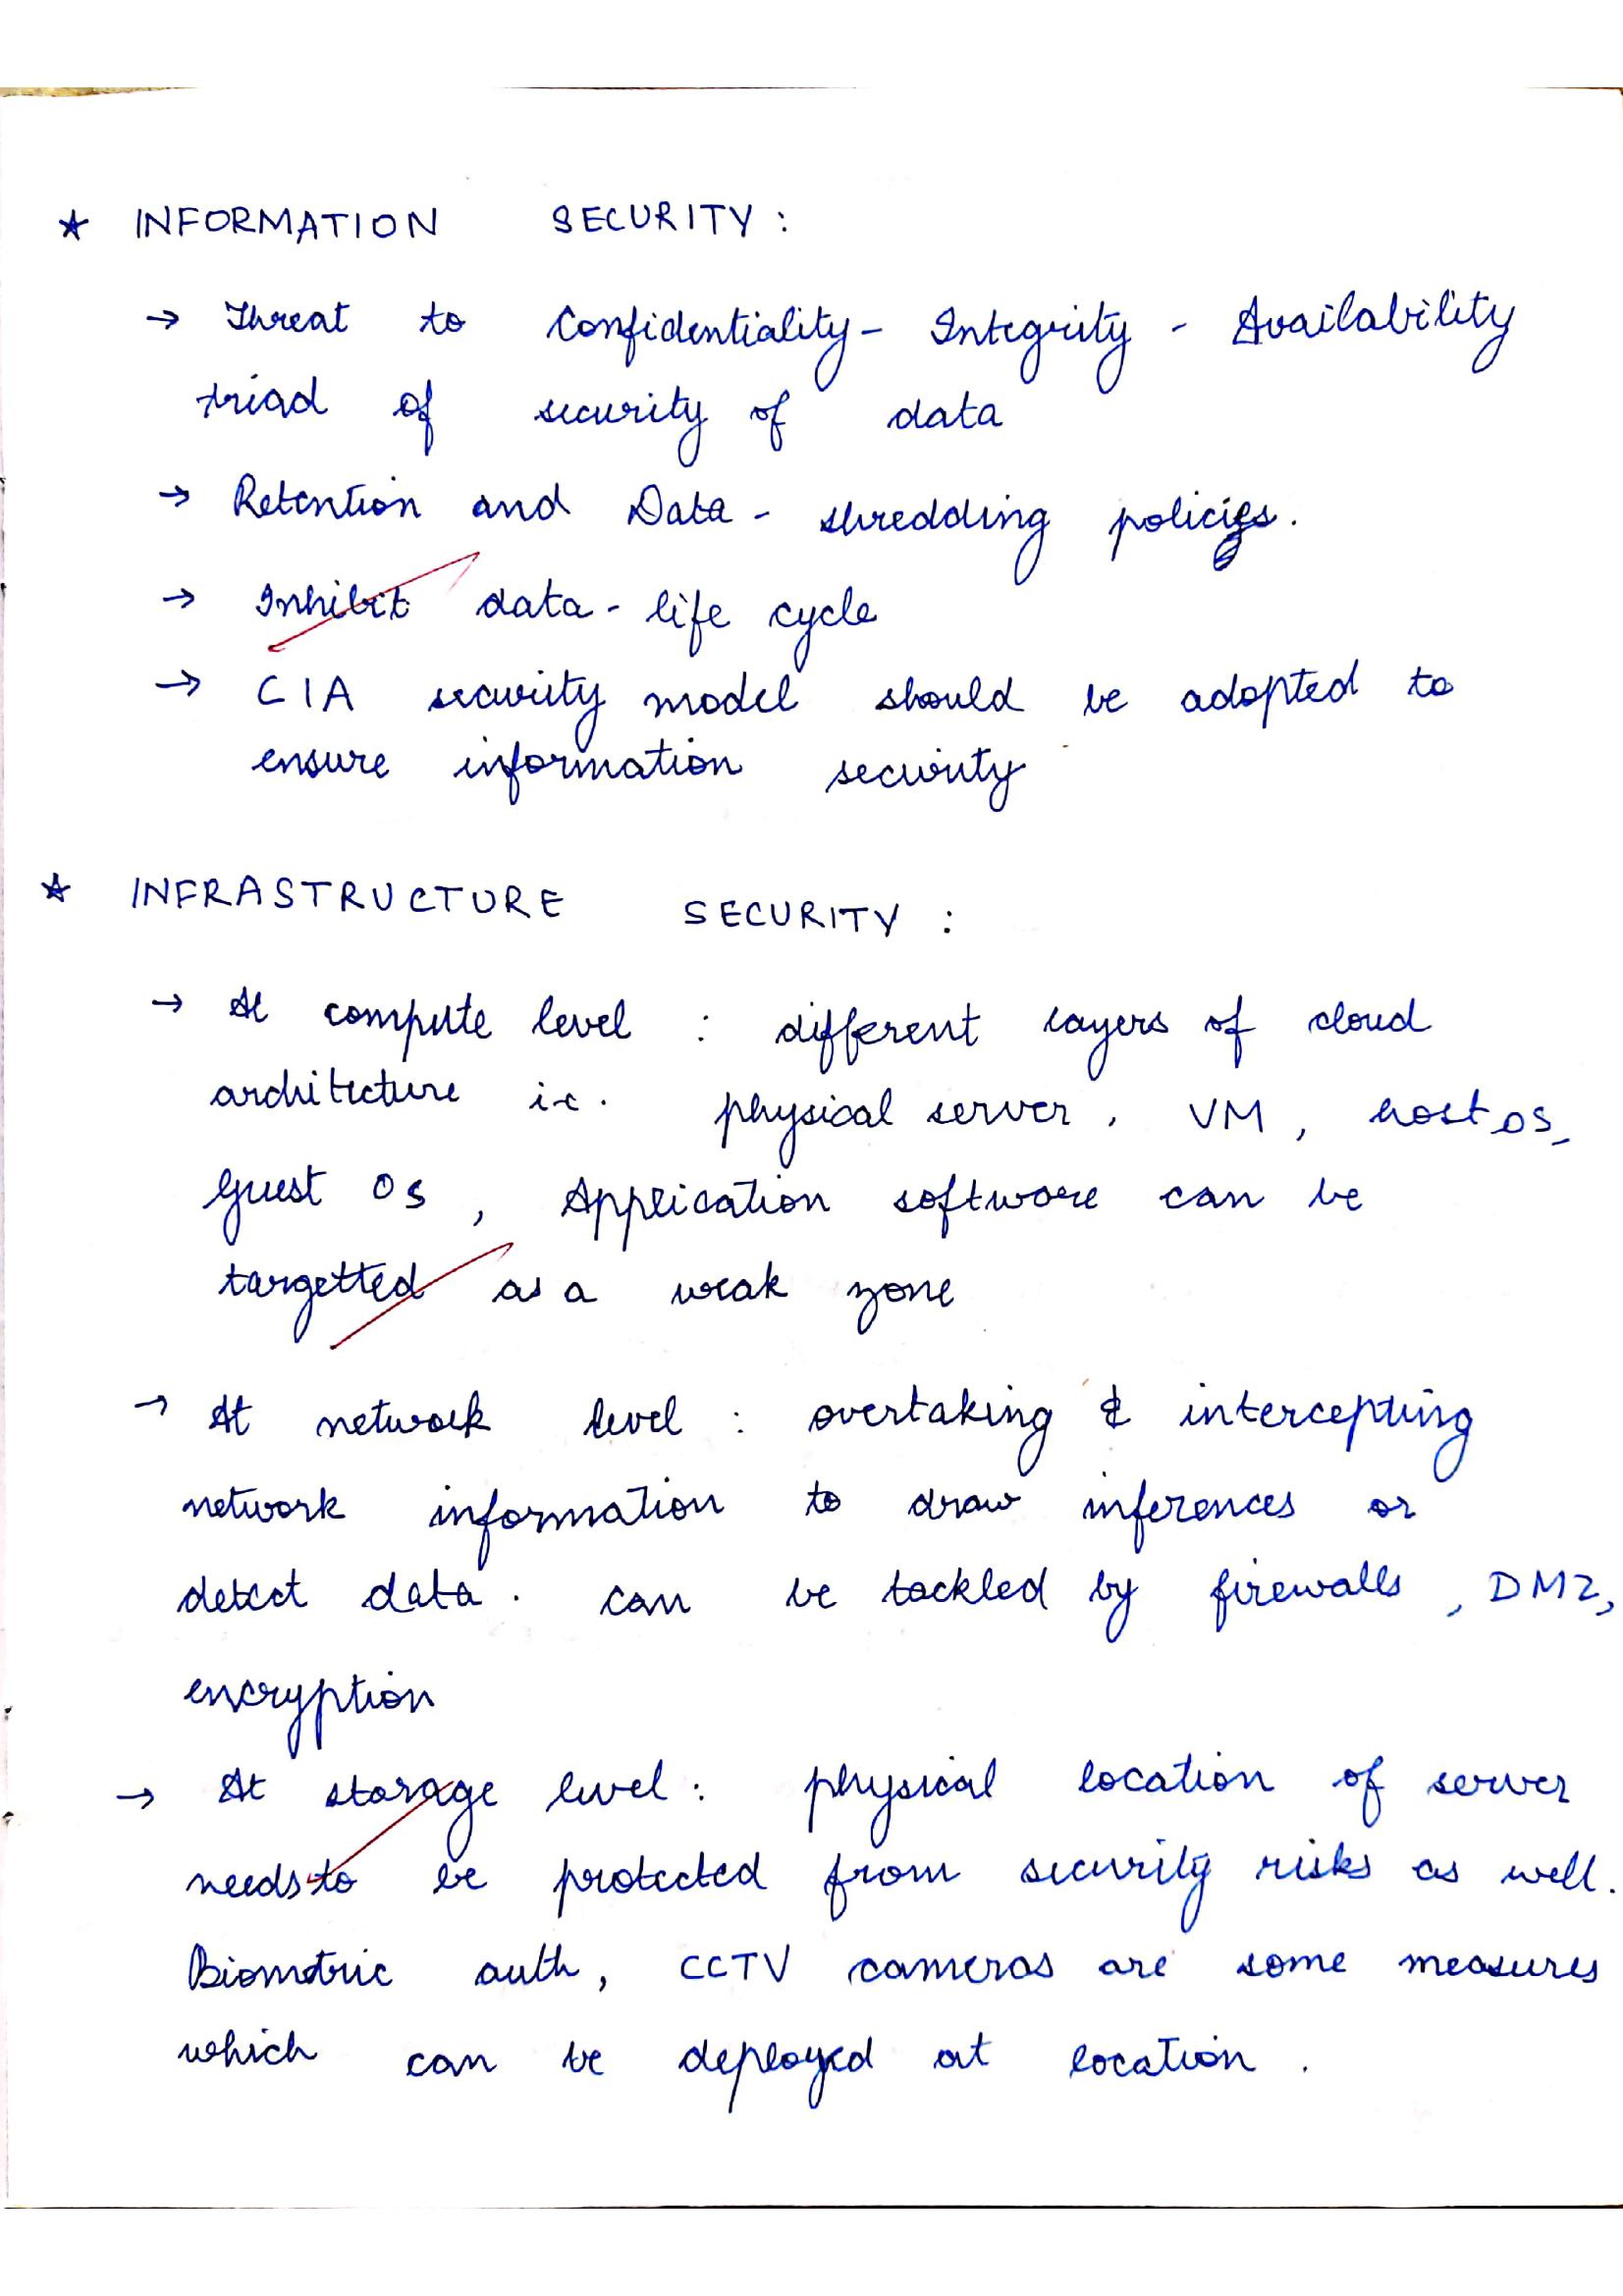 ★ INFORMATION SECURITY :
→ Threat to Confidentiality - Integrity - Availability
triad of security of data
→ Retention and Data - shredding policies.
→ Inhibit data - life cycle
→ CIA security model should be adopted to
ensure information security
★ INFRASTRUCTURE SECURITY :
→ At compute level : different layers of cloud
architecture i.e. physical server, VM, host OS,
guest OS, Application software can be
targetted as a weak zone
→ At network level : overtaking & intercepting
network information to draw inferences or
detect data. can be tackled by firewalls, DMZ,
encryption
→ At storage level : physical location of server
needs to be protected from security risks as well.
Biometric auth, CCTV cameras are some measures
which can be deployed at location.